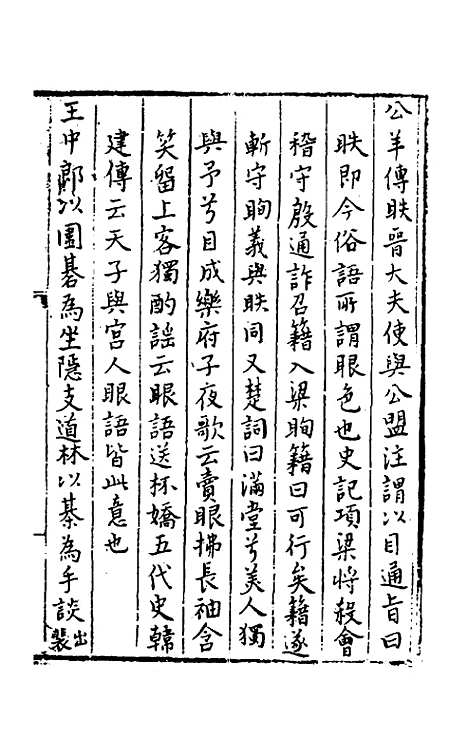 公羊傳眣晉大夫使與公盟注謂以目通旨曰
眣即今俗語所謂眼色也史記項梁將殺會
稽守殷通詐召籍入梁眴籍曰可行矣籍遂
斬守眴義與眣同又楚詞曰滿堂兮美人獨
與予兮目成樂府子夜歌云賣眼拂長袖含
笑留上客獨酌謠云眼語送杯嬌五代史韓
建傳云天子與宮人眼語皆此意也
王中郎以圍碁為坐隱支道林以棊為手談出裴